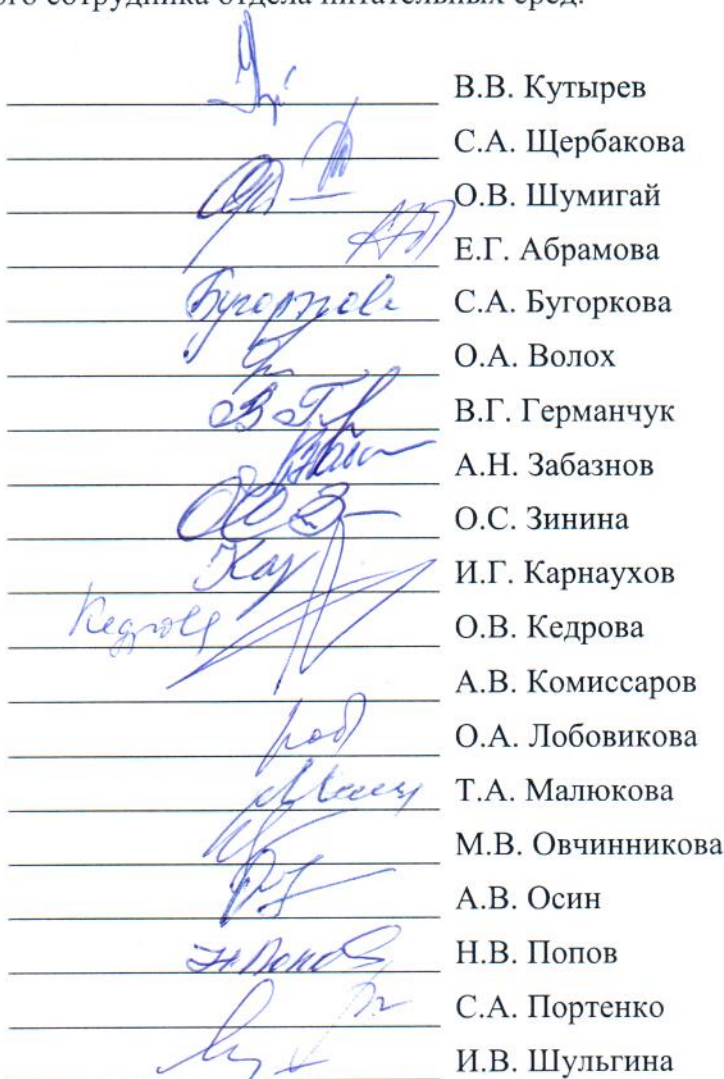 сотрудника отдела питательных сред.
В.В. Кутырев
С.А. Щербакова
О.В. Шумигай
Е.Г. Абрамова
Бугоркова С.А. Бугоркова
О.А. Волох
В.Г. Германчук
А.Н. Забазнов
О.С. Зинина
Кар И.Г. Карнаухов
Кедрова О.В. Кедрова
А.В. Комиссаров
О.А. Лобовикова
Т.А. Малюкова
М.В. Овчинникова
А.В. Осин
Н.В. Попов
С.А. Портенко
И.В. Шульгина